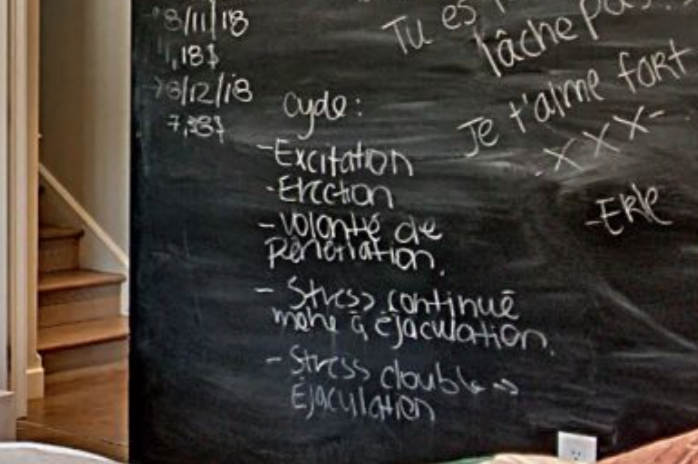 8/11/18
1,18$
8/12/18
7,38$
Cycle:
-Excitation
-Erection
-Volonté de
Pénétration.
- Stress continué
mène à éjaculation.
- Stress double →
Éjaculation
Tu es
lâche pas!
Je t'aime fort
-XXX-